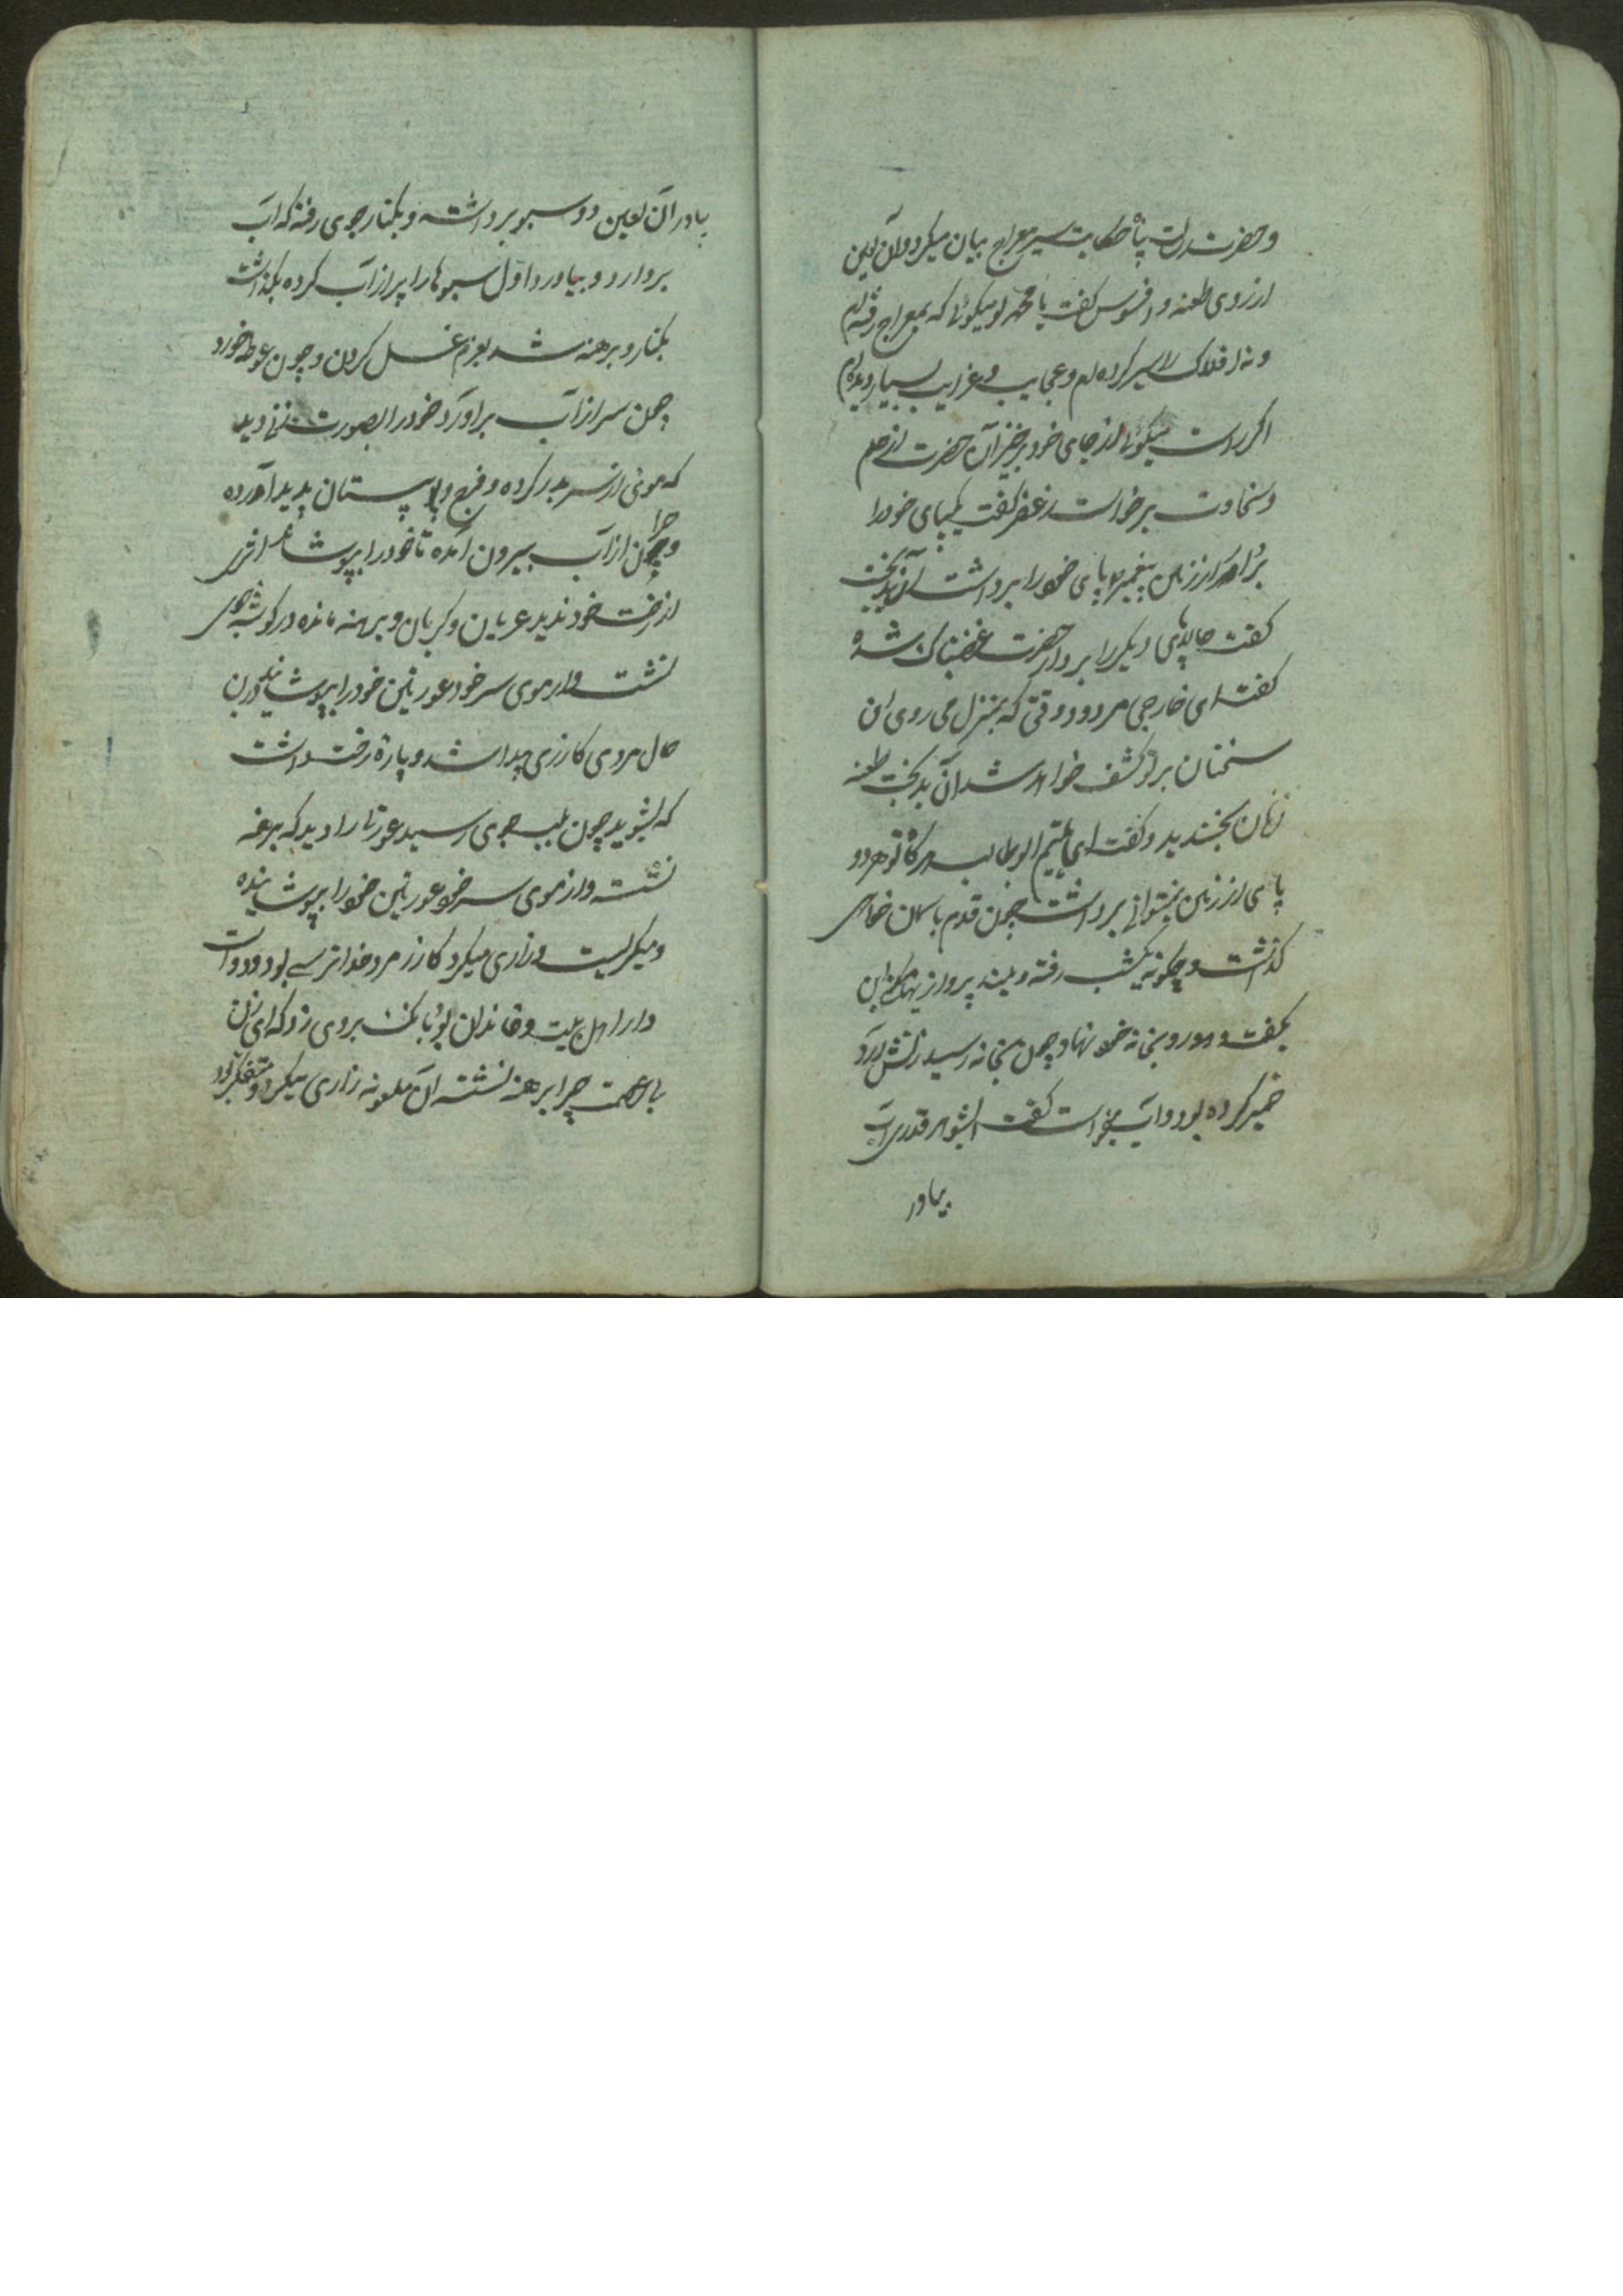 و حضرت رسالت پناه حکایت سیر معراج بیان میکرد و آن لعین
از روی طعنه و افسوس گفت یا محمد تو میگوئی که بمعراج رفته ام
و نه افلاک را سیر کرده ام و عجایب و غرایب بسیار دیده ام
اکر راست میگوئی از جای خود برخیز آن حضرت از حلم
و سخاوت برخواست گفت یکپای خود را
بردار از زمین پیغمبر پای خود را برداشت آن بدبخت
گفت حالا پای دیگر را بردار حضرت غضبناک شده
گفت ای خارجی مردود وقتی که بمنزل می روی این
سخنان بر تو کشف خواهد شد آن بدبخت طعنه
زنان بخندید و گفت ای یتیم ابوطالب هرگاه تو هر دو
پای از زمین نمیتوانی برداشت چون قدم باسمان خواهی
گذاشت و چگونه یکشب رفته
بگفت و رو بخانه خود نهاد چون بخانه رسید زنش آرد
خمیر کرده بود و آب میخواست گفت ایشوهر قدری آب
بیاور
بیادر آن لعین دو سبو برداشته و بکنار جوی رفته که آب
بردارد و بیاورد اول سبوها را پر از آب کرده بگذاشت
بکنار و برهنه شد بعزم غسل کردن و چون غوطه خورد
چون سر از آب برآورد خود را بصورت زنی دید
که موئی از سر بدر کرده و فرج و پستان پدید آورده
و چون از آب بیرون آمده تا خود را بپوشاند اثری
از رخت خود ندید عریان و گریان و برهنه مانده در گوشه جوی
نشست و از موی سر خود عورتین خود را بپوشانید درین
حال مردی کازری پیدا شد و پارۀ رخت داشت
که بشوید چون بلب جوی رسید عورتی را دید که برهنه
نشسته و از موی سر خود عورتین خود را بپوشانیده
و میگریست و زاری میکرد کازر مرد خداترسی بود و دوست
دار اهل بیت و خاندان بود بانگ بروی زد که ای زن
با عصمت چرا برهنه نشسته آن ملعونه زاری میکرد و متفکر بود